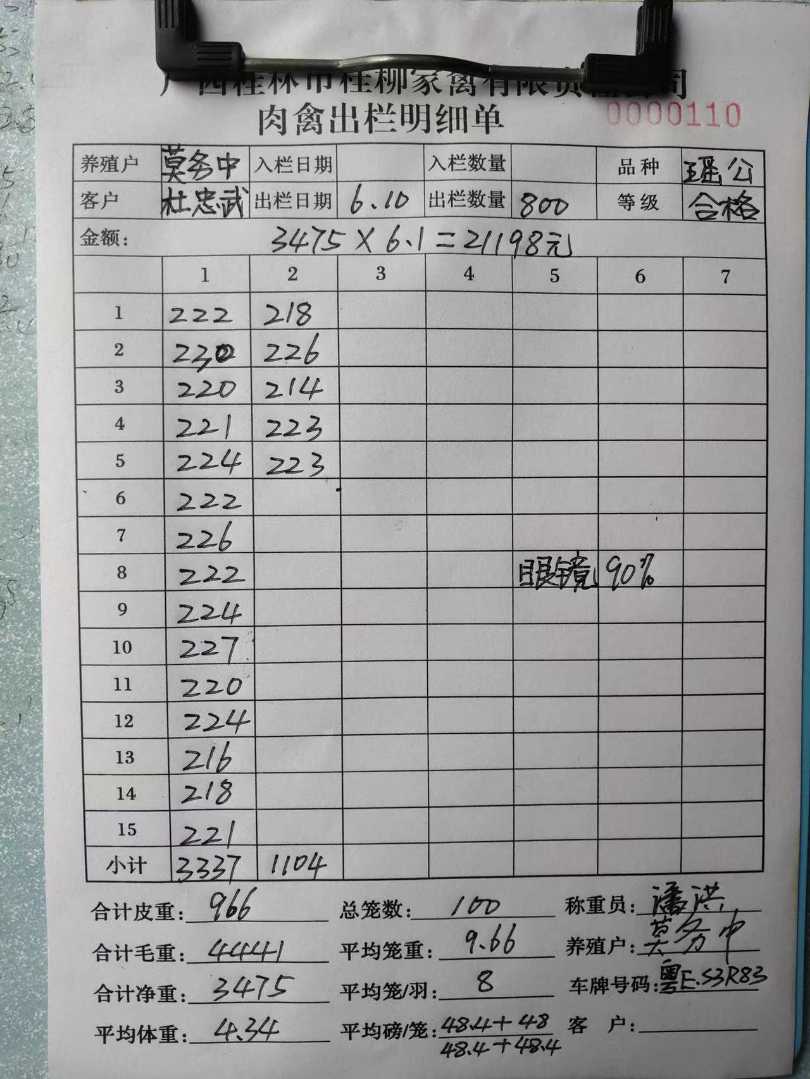 广西桂林市桂柳家禽有限责任公司
肉禽出栏明细单 0000110
养殖户 莫务中 入栏日期 入栏数量 品种 瑶公
客户 杜忠武 出栏日期 6.10 出栏数量 800 等级 合格
金额: 3475×6.1=21198元
1 2 3 4 5 6 7
1 222 218
2 230 226
3 220 214
4 221 223
5 224 223
6 222
7 226
8 222 眼镜 90%
9 224
10 227
11 220
12 224
13 216
14 218
15 221
小计 3337 1104
合计皮重: 966 总笼数: 100 称重员: 潘洪
合计毛重: 4441 平均笼重: 9.66 养殖户: 莫务中
合计净重: 3475 平均笼/羽: 8 车牌号码: 粤E.S3R83
平均体重: 4.34 平均磅/笼: 48.4+48 客户:
48.4+48.4